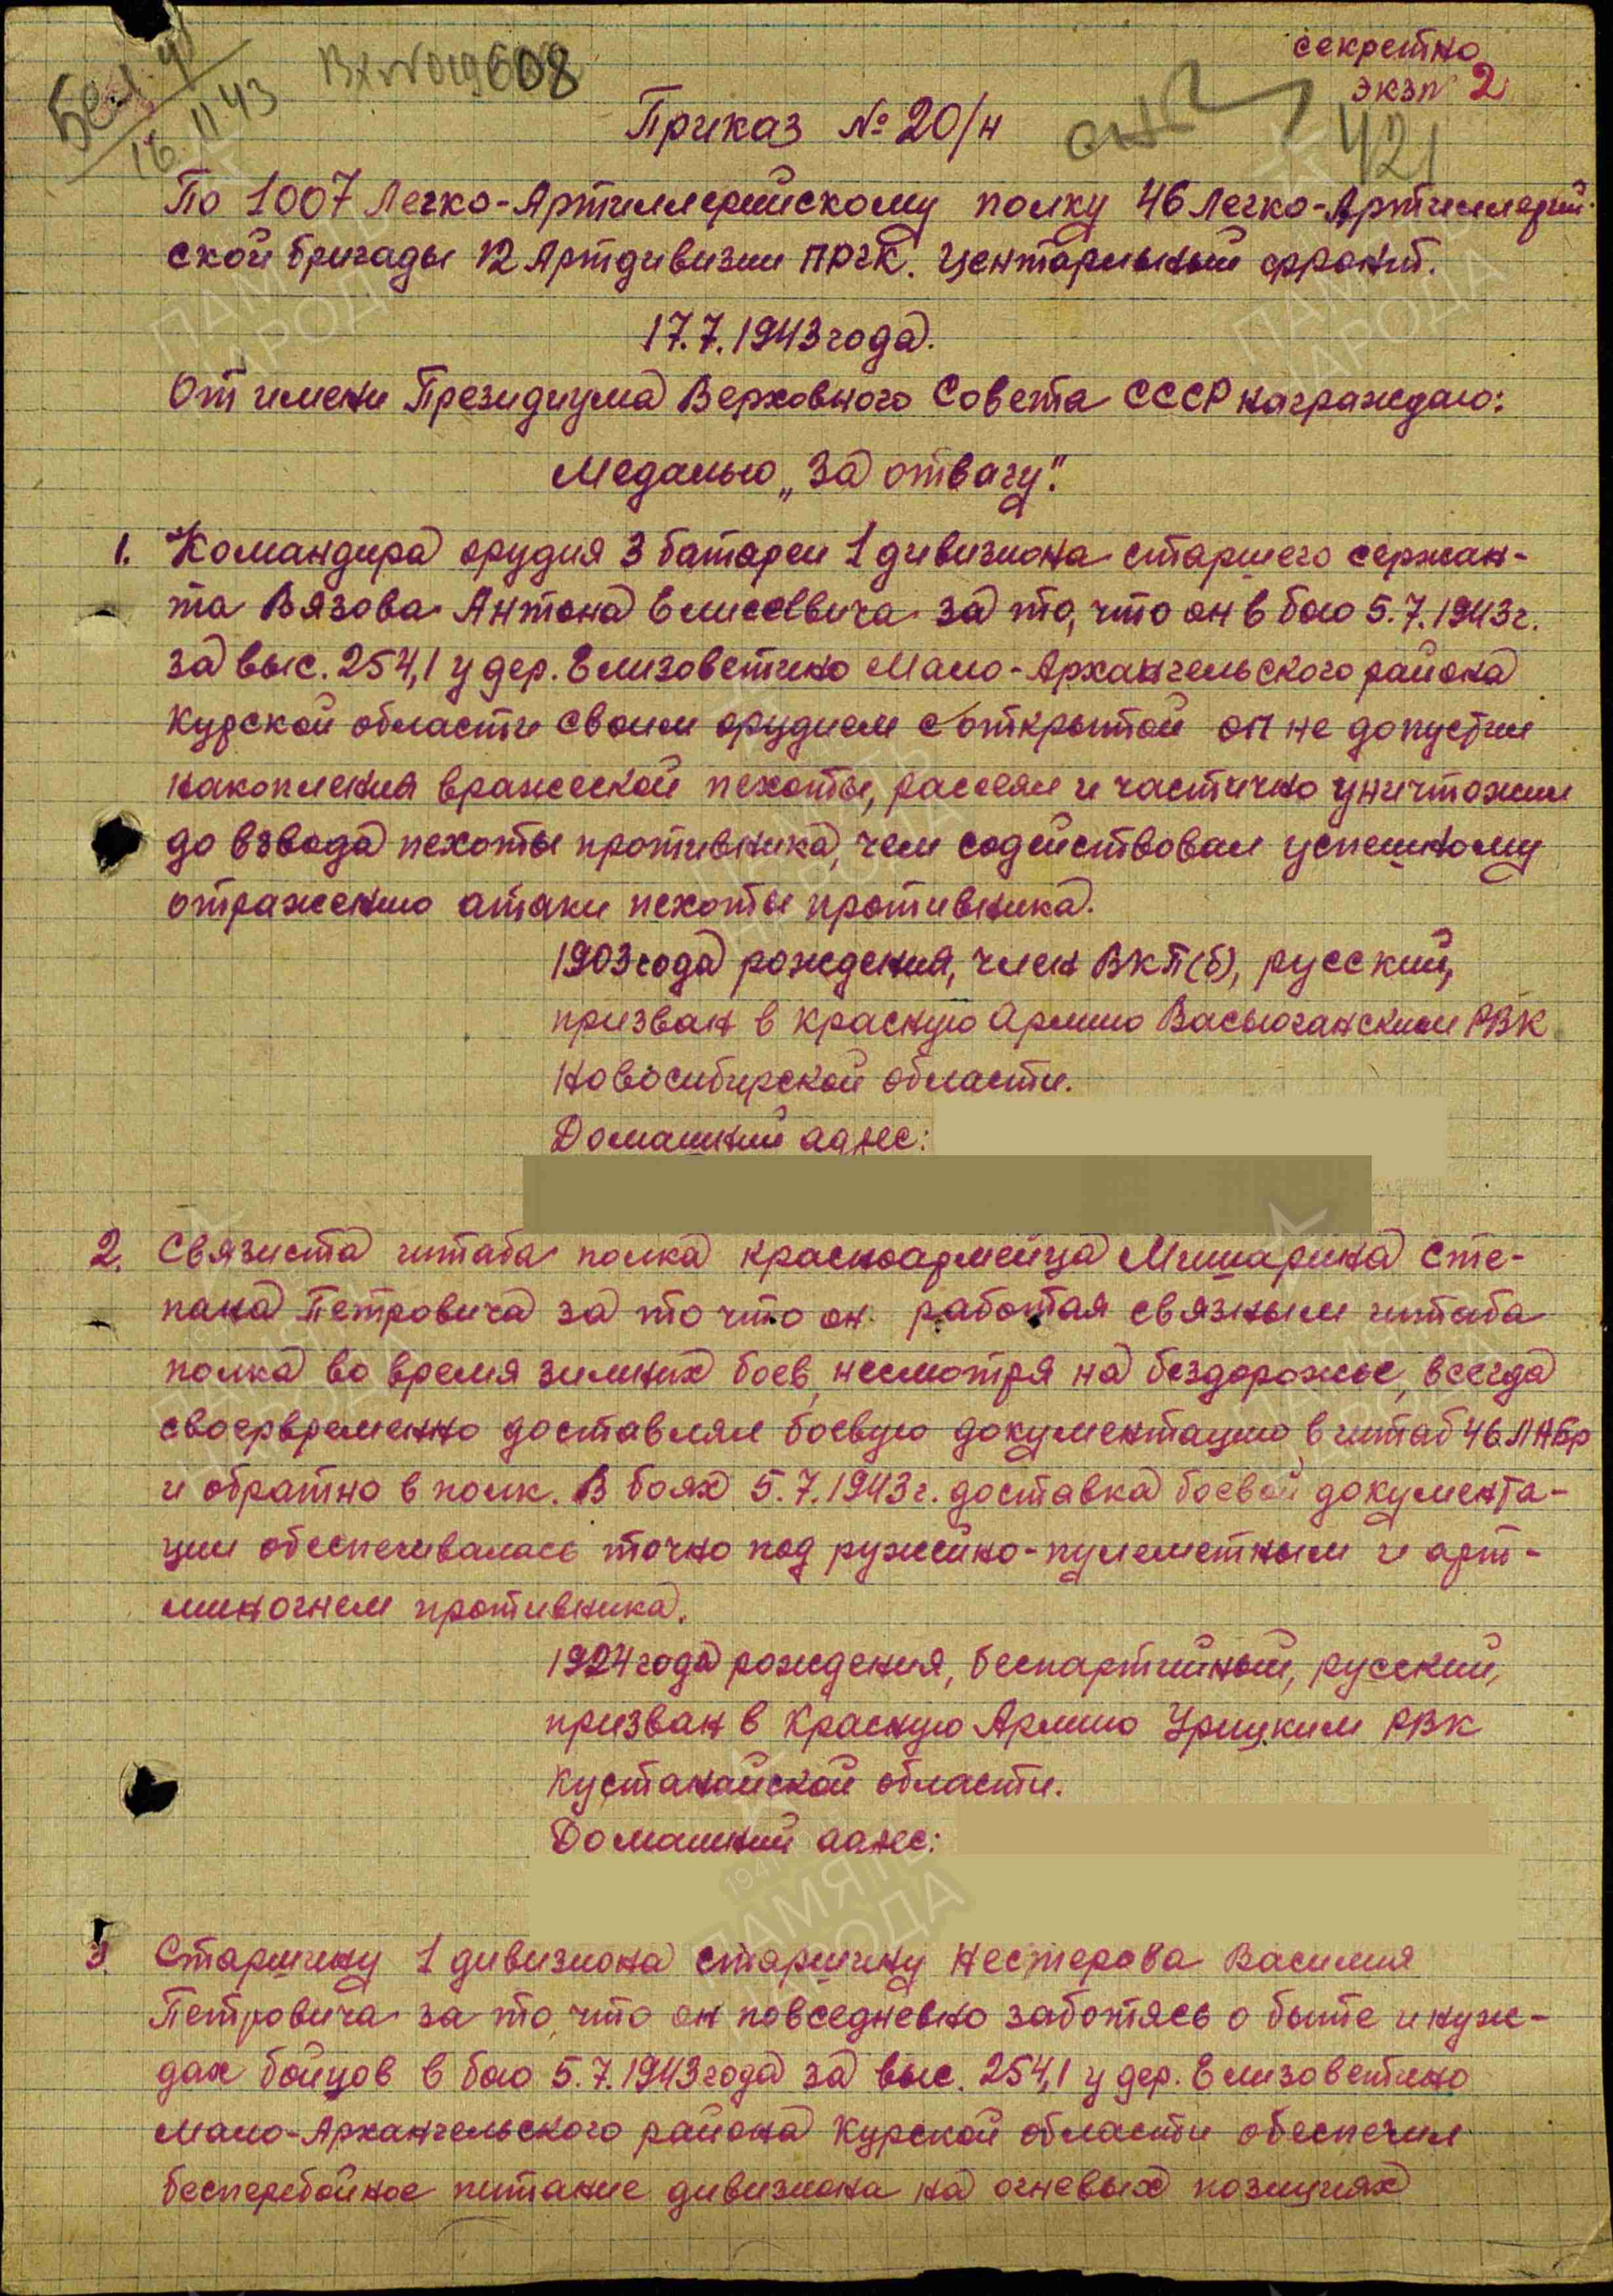 секретно
экзп 2
Вх №019608
16.11.43
421
Приказ № 20/н
По 1007 Легко-Артиллерийскому полку 46 Легко-Артиллерий-
ской бригады 12 Артдивизии ПРГК. Центральный фронт.
17.7.1943 года.
От имени Президиума Верховного Совета СССР награждаю:
Медалью „За отвагу".
1. Командира орудия 3 батареи 1 дивизиона старшего сержан-
та Вязова Антона Елисеевича за то, что он в бою 5.7.1943г.
за выс. 254,1 у дер. Елизоветино Мало-Архангельского района
Курской области своим орудием с открытой оп не допустил
накопления вражеской пехоты, рассеял и частично уничтожил
до взвода пехоты противника, чем содействовал успешному
отражению атаки пехоты противника.
1903 года рождения, член ВКП(б), русский,
призван в Красную Армию Васьюганским РВК
Новосибирской области.
Домашний адрес:
2. Связиста штаба полка красноармейца Мишарина Сте-
пана Петровича за то что он работая связным штаба
полка во время зимних боев, несмотря на бездорожье, всегда
своервременно доставлял боевую документацию в штаб 46 ЛАБр
и обратно в полк. В боях 5.7.1943г. доставка боевой документа-
ции обеспечивалась точно под ружейно-пулеметным и арт-
миногнем противника.
1924 года рождения, беспартийный, русский,
призван в Красную Армию Урицким РВК
Кустанайской области.
Домашний адрес:
3. Старшину 1 дивизиона старшину Нестерова Василия
Петровича за то, что он повседневно заботясь о быте и нуж-
дах бойцов в бою 5.7.1943 года за выс. 254,1 у дер. Елизоветино
Мало-Архангельского района Курской области обеспечил
бесперебойное питание дивизиона на огневых позициях